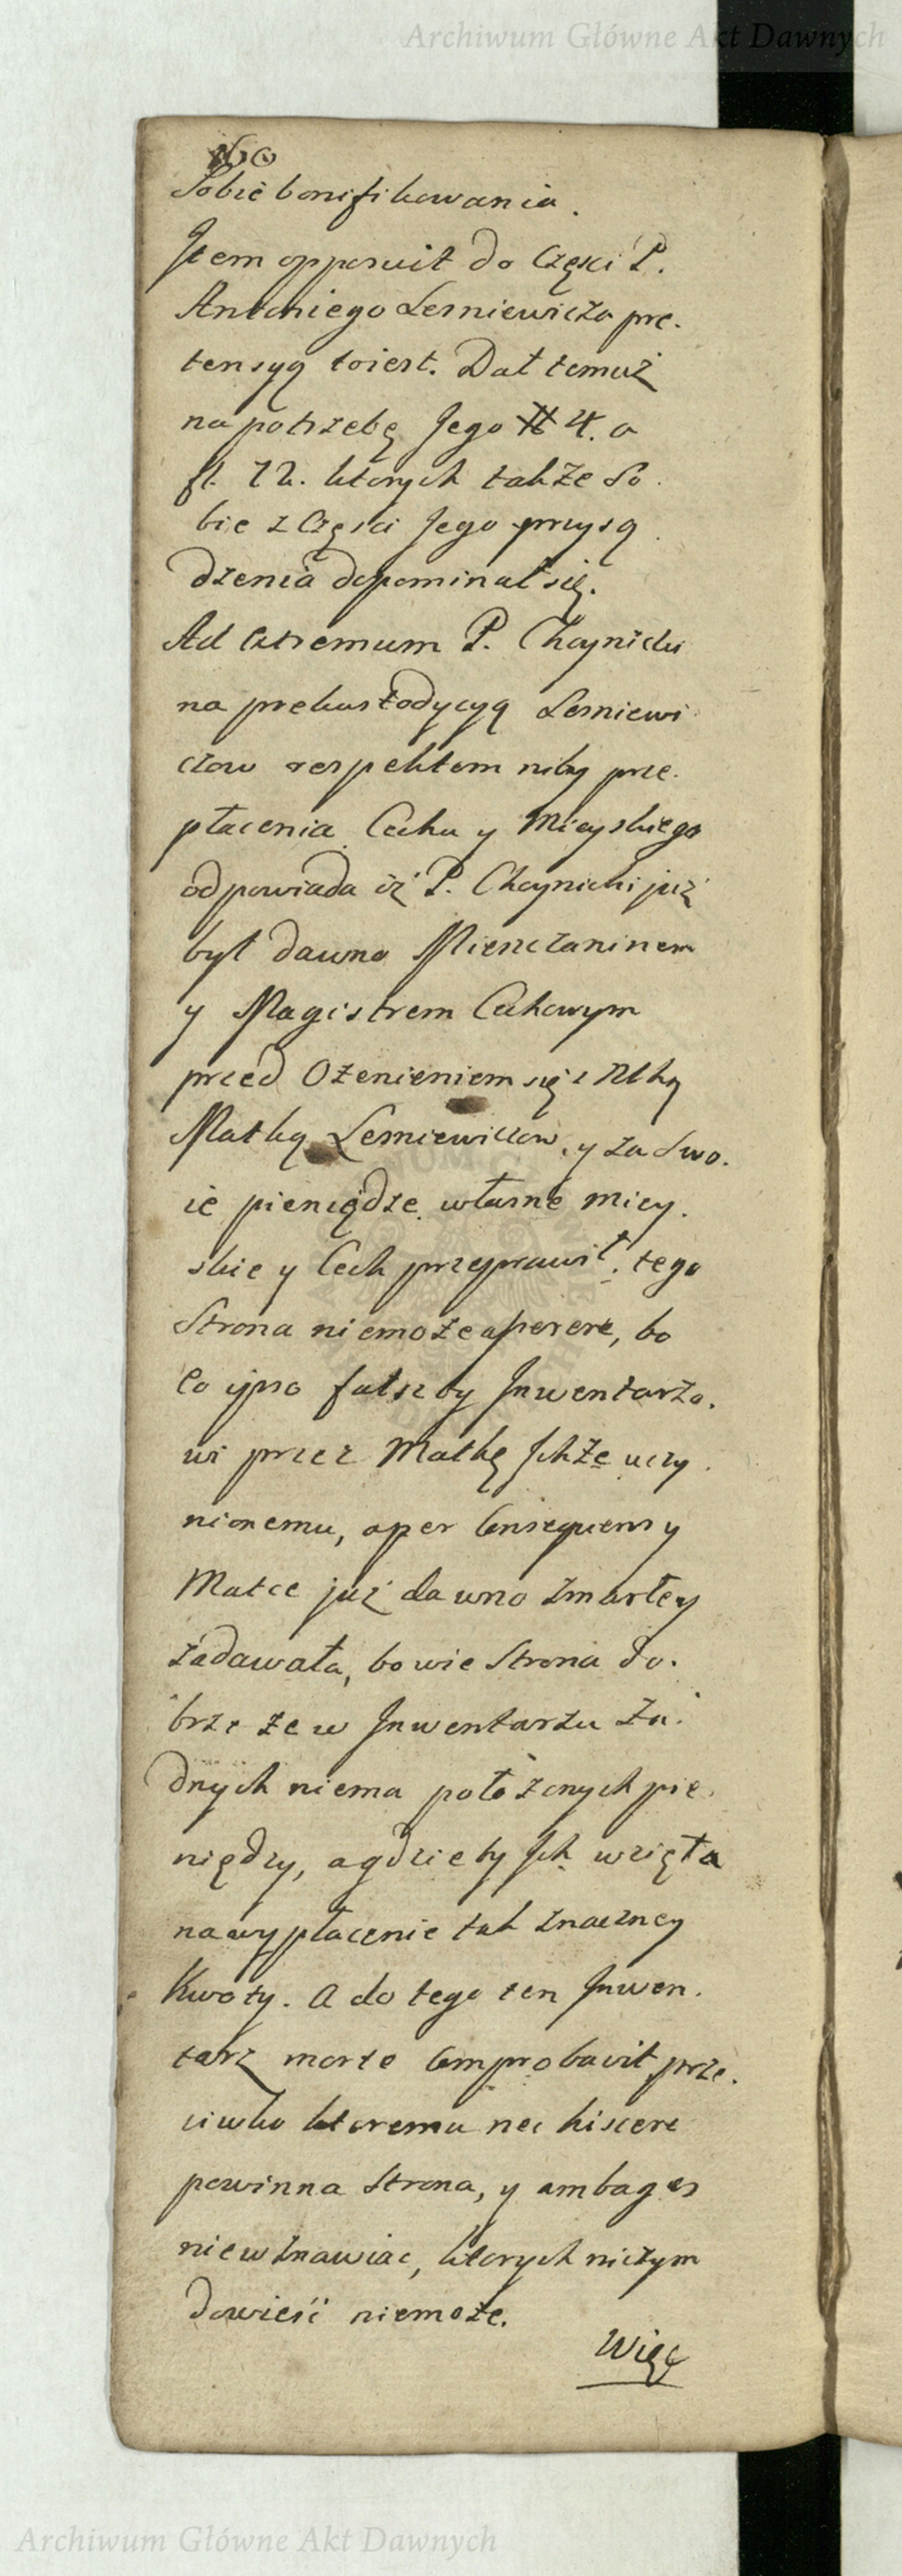 Archiwum Główne Akt Dawnych
160
Sobie bonifikowania.
Jtem opposuit do Częsci P.
Antoniego Lesniewicza pre.
tensyą toiest. Dał temuż
na potrzebę Jego # 4. a
fl. 72. ktorych także So
bie z Częsci Jego przysą
dzenia dopominał się.
Ad Extremum P. Choynicki
na prekustodycyą Lesniewi
czow respektem niby prze.
płacenia Cechu y Mieyskiego
odpowiada iż P. Choynicki już
był dawno Miesczaninem
y Magistrem Cechowym
przed Ożenieniem się z
Matką Lesniewiczow, y za Swo.
ie pieniądze własne miey.
skie y Cech przeprawił, tego
Strona niemoże asperere, bo
Eo ipso fałszby Jnwentarzo.
wi przez Matkę Jchże uczy
nionemu, a per Consequens y
Matce już dawno zmarłey
zadawała, bo wie Strona do.
brze że w Jnwentarzu Ża.
dnych niema położonych pie.
niędzy, a gdzieby Jch wzięła
na wypłacenie tak znaczney
Kwoty. A do tego ten Jnwen.
tarz morte Comprobavit prze.
ciwko ktoremu nec hiscere
powinna Strona, y ambages
niewznawiac, ktorych niczym
dowieść niemoże.
Więc
Archiwum Główne Akt Dawnych